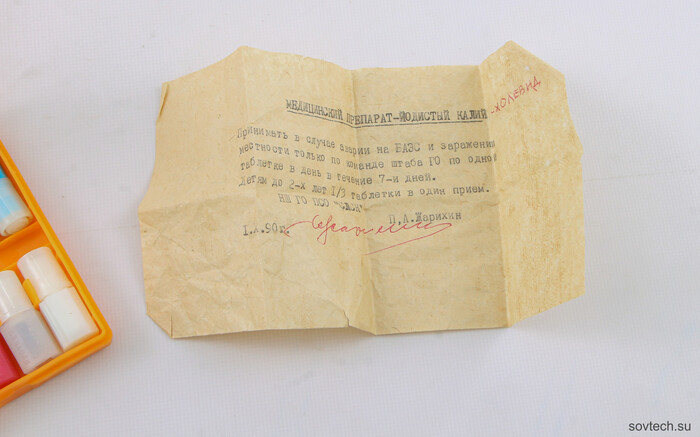 МЕДИЦИНСКИЙ ПРЕПАРАТ-ЙОДИСТЫЙ КАЛИЙ -ХОЛЕВИД
Принимать в случае аварии на ВАЭС и заражения
местности только по команде штаба ГО по одной
таблетке в день в течение 7-и дней.
Детям до 2-х лет I/3 таблетки в один прием.
НШ ГО ПСО "СЛОН"
П.А.Жарихин
90г.
sovtech.su